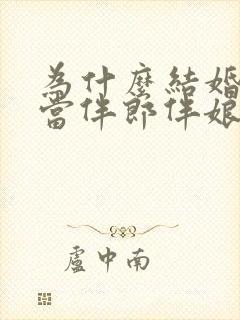 為什麼結婚
當伴郎伴娘
盧中南